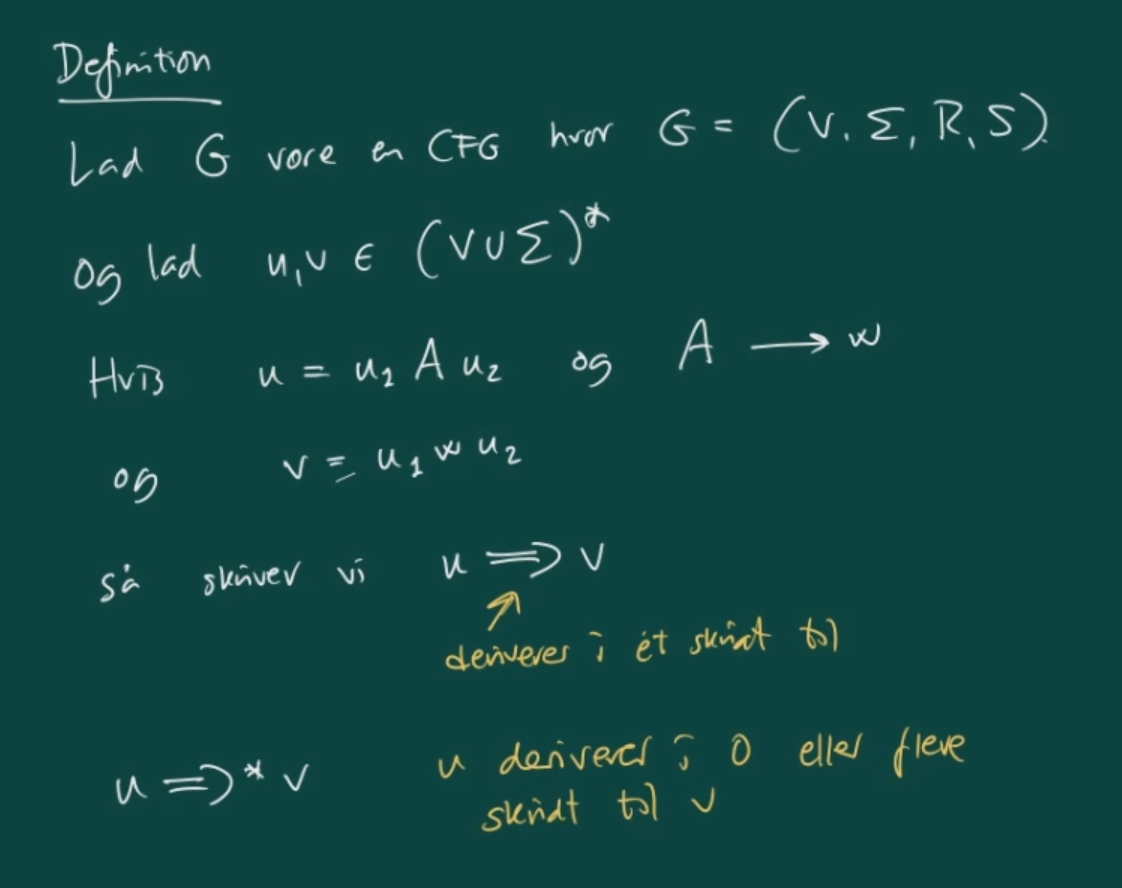 Definition
Lad G være en CFG hvor G = (V, Σ, R, S)
og lad u, v ∈ (V ∪ Σ)*
Hvis u = u₁ A u₂ og A → w
og v = u₁ w u₂
så skriver vi u ⇒ v
deriverer i ét skridt til
u ⇒* v
u deriverer i 0 eller flere
skridt til v